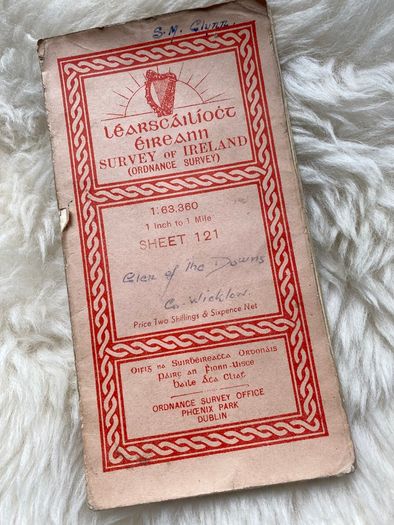 S. M. Glynn
Léarscáilíoċt
Éireann
SURVEY OF IRELAND
(ORDNANCE SURVEY)
1:63,360
1 Inch to 1 Mile
SHEET 121
Glen of the Downs
Co. Wicklow.
Price Two Shillings & Sixpence Net
Oifig na Suirḃéireaċta Ordonáis
Páirc an Fionn-Uisce
Baile Áṫa Cliaṫ
ORDNANCE SURVEY OFFICE
PHŒNIX PARK
DUBLIN